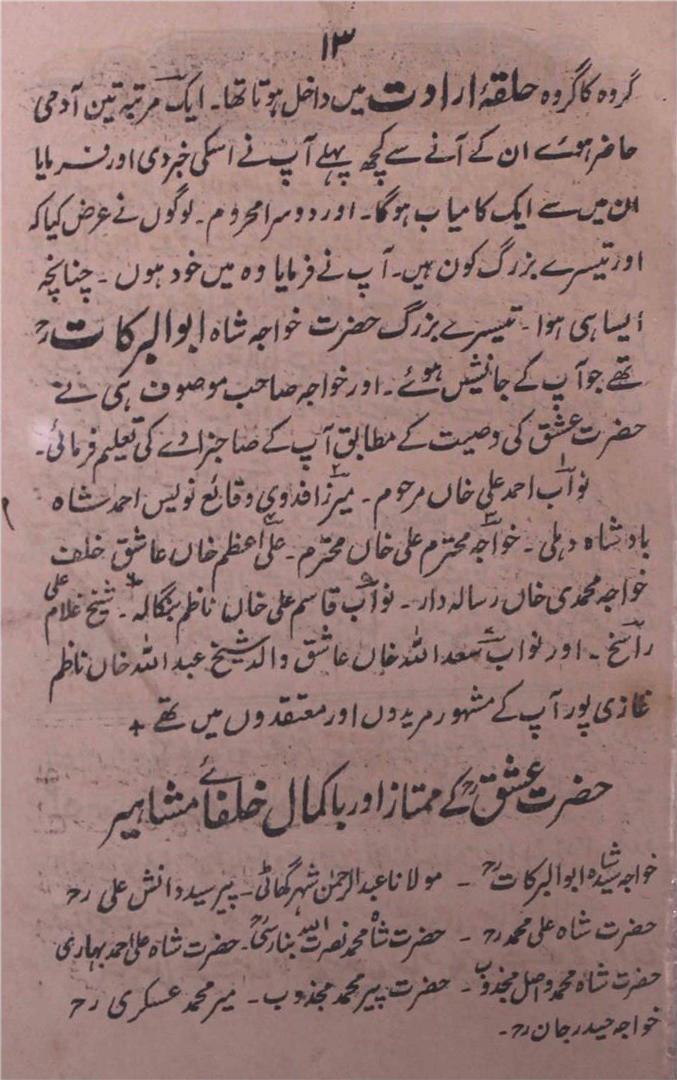 ۱۳
گروہ کا گروہ حلقۂ ارادت میں داخل ہوتا تھا۔ ایک مرتبہ تین آدمی
حاضر ہوئے ان کے آنے سے کچھ پہلے آپ نے اسکی خبر دی اور فرمایا
ان میں سے ایک کامیاب ہوگا۔ اور دوسرا محروم۔ لوگوں نے عرض کیا کہ
اور تیسرے بزرگ کون ہیں۔ آپ نے فرمایا وہ میں خود ہوں۔ چنانچہ
ایسا ہی ہوا۔ تیسرے بزرگ حضرت خواجہ شاہ ابوالبرکات رح
تھے جو آپ کے جانشیں ہوئے۔ اور خواجہ صاحب موصوف ہی نے
حضرت عشق کی وصیت کے مطابق آپ کے صاحبزادے کی تعلیم فرمائی۔
نواب احمد علی خاں مرحوم۔ میرزا فدوی وقائع نویس احمد شاہ
بادشاہ دہلی۔ خواجہ محترم علی خاں محترم۔ علی اعظم خاں عاشق خلف
خواجہ محمدی خاں رسالہ دار۔ نواب قاسم علی خاں ناظم بنگالہ۔ شیخ غلام علی
راسخ۔ اور نواب سعد اللہ خاں عاشق والد شیخ عبد اللہ خاں ناظم
غازی پور آپ کے مشہور مریدوں اور معتقدوں میں تھے +
حضرت عشق رح کے ممتاز اور باکمال خلفائے مشاہیر
خواجہ سید شاہ ابوالبرکات رح ۔ مولانا عبد الرحمٰن شہر گھاٹی۔ پیر سید دانش علی رح
حضرت شاہ علی محمد رح ۔ حضرت شاہ محمد نصرت اللہ بنارسی رح۔ حضرت شاہ علی احمد بہاری
حضرت شاہ محمد واصل مجذوب ۔ حضرت پیر محمد مجذوب۔ میر محمد عسکری رح
خواجہ حیدر جان رح۔